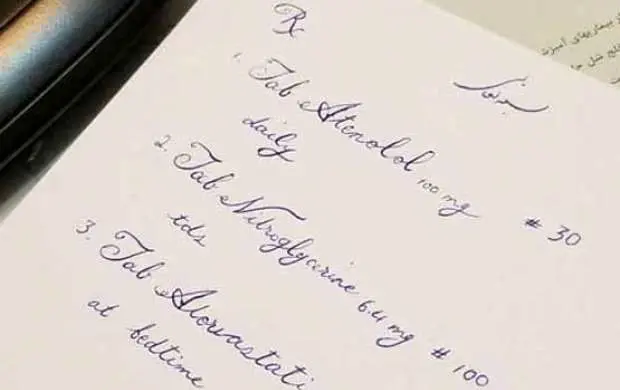 Rx
1. Tab Atenolol 100 mg # 30
daily
2. Tab Nitroglycerine 6.4 mg # 100
tds
3. Tab Atorvastati
at bedtime
بیماریهای آمیزش